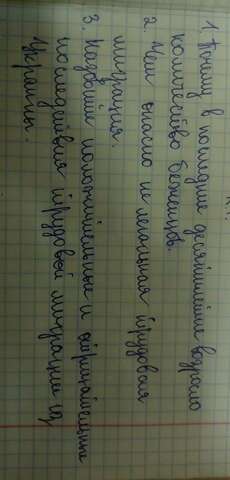 1. Почему в последние десятилетия возросло
количество беженцев.
2. Чем опасна нелегальная трудовая
миграция.
3. Назовите положительные и отрицательные
последствия трудовой миграции из
Украины.